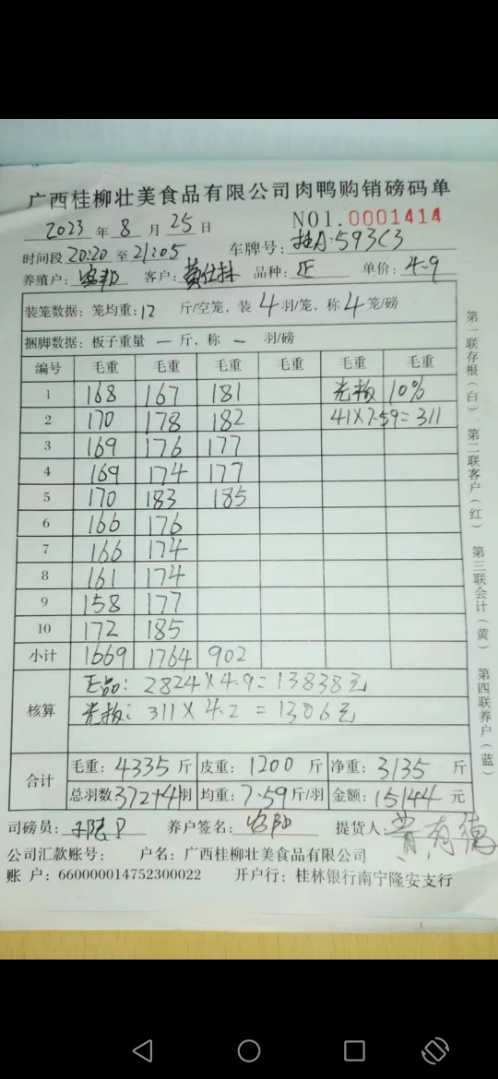 广西桂柳壮美食品有限公司肉鸭购销磅码单
2023 年 8 月 25 日 NO1.0001414
时间段 20:20 至 21:05 车牌号: 桂A·593C3
养殖户: 客户: 黄仕林 品种: 正 单价: 4-9
装笼数据: 笼均重: 12 斤/空笼, 装 4 羽/笼, 称 4 笼/磅
捆脚数据: 板子重量 — 斤, 称 — 羽/磅
编号 毛重 毛重 毛重 毛重 毛重 毛重
1 168 167 181 光板 10%
2 170 178 182 41×7.59=311
3 169 176 177
4 169 174 177
5 170 183 185
6 166 176
7 166 174
8 161 174
9 158 177
10 172 185
小计 1669 1764 902
核算 正品: 2824×4.9=13838元
光板: 311×4.2=1306元
合计 毛重: 4335 斤 皮重: 1200 斤 净重: 3135 斤
总羽数 372+4羽 均重: 7.59斤/羽 金额: 15144 元
司磅员: 养户签名: 提货人:
公司汇款账号: 户名: 广西桂柳壮美食品有限公司
账 户: 660000014752300022 开户行: 桂林银行南宁隆安支行
第一联存根(白) 第二联客户(红) 第三联会计(黄) 第四联养户(蓝)